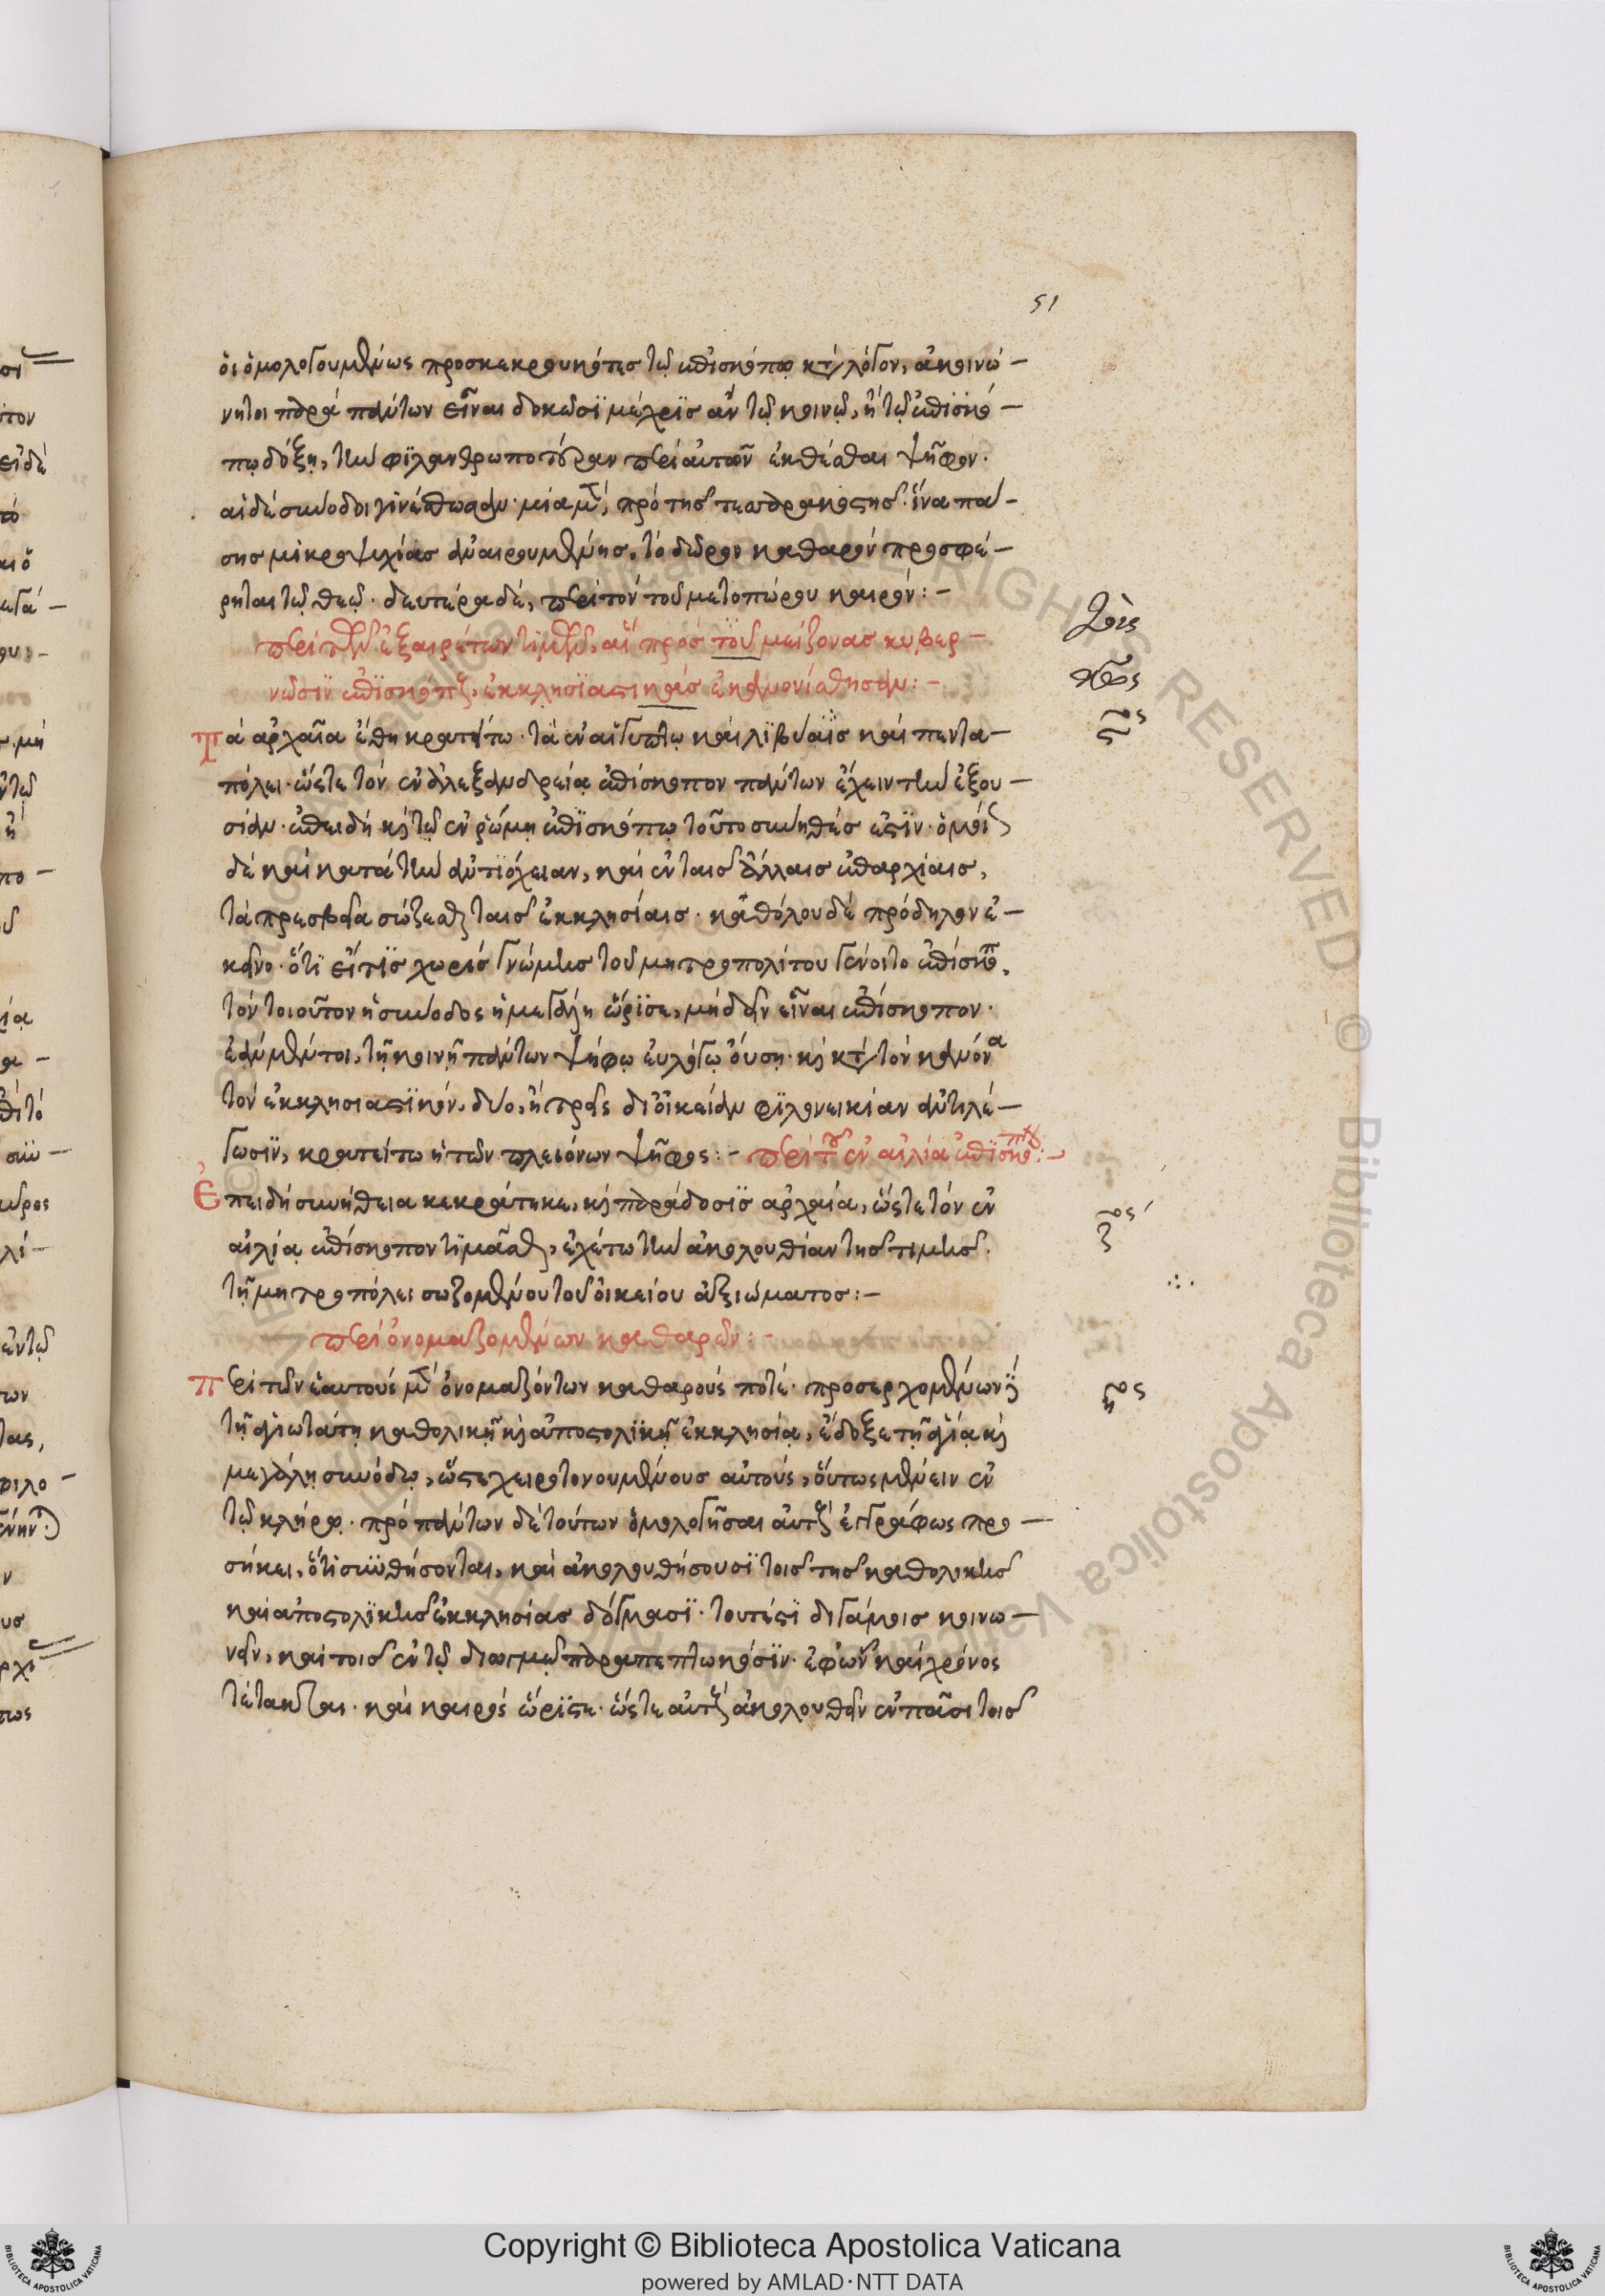 51
οἱ ὁμολογουμένως προσκεκρουκότες τῷ ἐπισκόπῳ κατὰ λόγον, ἀκοινώ-
νητοι παρὰ πάντων εἶναι δοκῶσι μέχρις ἂν τῷ κοινῷ, ἢ τῷ ἐπισκό-
πῳ δόξῃ, τὴν φιλανθρωποτέραν περὶ αὐτῶν ἐκθέσθαι ψῆφον·
αἱ δὲ σύνοδοι γινέσθωσαν· μία μὲν, πρὸ τῆς τεσσαρακοστῆς· ἵνα πά-
σης μικροψυχίας ἀναιρουμένης, τὸ δῶρον καθαρὸν προσφέ-
ρηται τῷ θεῷ· δευτέρα δὲ, περὶ τὸν τοῦ μετοπώρου καιρόν:-
περὶ τῶν ἐξαιρέτων τιμῶν, αἳ πρὸς τοὺς μείζονας κυβερ-
νῶσιν ἐπισκόπους, ἐκκλησιαστικὰς ἐκανονίσθησαν:-
τοὺς
κὰς
Τὰ ἀρχαῖα ἔθη κρατείτω· τὰ ἐν αἰγύπτῳ καὶ λιβύαις καὶ πεντα-
ϛος
πόλει· ὥστε τὸν ἐν ἀλεξανδρείᾳ ἐπίσκοπον πάντων ἔχειν τὴν ἐξου-
σίαν· ἐπειδὴ καὶ τῷ ἐν ῥώμῃ ἐπισκόπῳ τοῦτο σύνηθές ἐστιν· ὁμοίως
δὲ καὶ κατὰ τὴν ἀντιόχειαν, καὶ ἐν ταῖς ἄλλαις ἐπαρχίαις,
τὰ πρεσβεῖα σώζεσθαι ταῖς ἐκκλησίαις· καθόλου δὲ πρόδηλον ἐ-
κεῖνο· ὅτι εἴ τις χωρὶς γνώμης τοῦ μητροπολίτου γένοιτο ἐπίσκοπος,
τὸν τοιοῦτον ἡ σύνοδος ἡ μεγάλη ὥρισε, μὴ δεῖν εἶναι ἐπίσκοπον·
ἐὰν μέντοι, τῇ κοινῇ πάντων ψήφῳ εὐλόγῳ οὔσῃ· καὶ κατὰ τὸν κανόνα
τὸν ἐκκλησιαστικόν, δύο, ἢ τρεῖς δι' οἰκείαν φιλονεικίαν ἀντιλέ-
γωσιν, κρατείτω ἡ τῶν πλειόνων ψῆφος:- περὶ τοῦ ἐν αἰλίᾳ ἐπισκόπου:-
Ἐπειδὴ συνήθεια κεκράτηκε, καὶ παράδοσις ἀρχαία, ὥστε τὸν ἐν
ζος
αἰλίᾳ ἐπίσκοπον τιμᾶσθαι, ἐχέτω τὴν ἀκολουθίαν τῆς τιμῆς·
τῇ μητροπόλει σωζομένου τοῦ οἰκείου ἀξιώματος:-
περὶ ὀνομαζομένων καθαρῶν:-
Περὶ τῶν ἑαυτοὺς μὲν ὀνομαζόντων καθαρούς ποτέ· προσερχομένων δὲ
ηος
τῇ ἁγιωτάτῃ καθολικῇ καὶ ἀποστολικῇ ἐκκλησίᾳ, ἔδοξε τῇ ἁγίᾳ καὶ
μεγάλῃ συνόδῳ, ὥστε χειροτονουμένους αὐτούς, οὕτως μένειν ἐν
τῷ κλήρῳ· πρὸ πάντων δὲ τούτων ὁμολογῆσαι αὐτοὺς ἐγγράφως προ-
σήκει, ὅτι συνθήσονται, καὶ ἀκολουθήσουσι τοῖς τῆς καθολικῆς
καὶ ἀποστολικῆς ἐκκλησίας δόγμασι· τουτέστι διγάμοις κοινω-
νεῖν, καὶ τοῖς ἐν τῷ διωγμῷ παραπεπτωκόσιν· ἐφ' ὧν καὶ χρόνος
τέτακται· καὶ καιρὸς ὥρισται· ὥστε αὐτοὺς ἀκολουθεῖν ἐν πᾶσι τοῖς
© Biblioteca Apostolica Vaticana ALL RIGHTS RESERVED
Copyright © Biblioteca Apostolica Vaticana
powered by AMLAD·NTT DATA